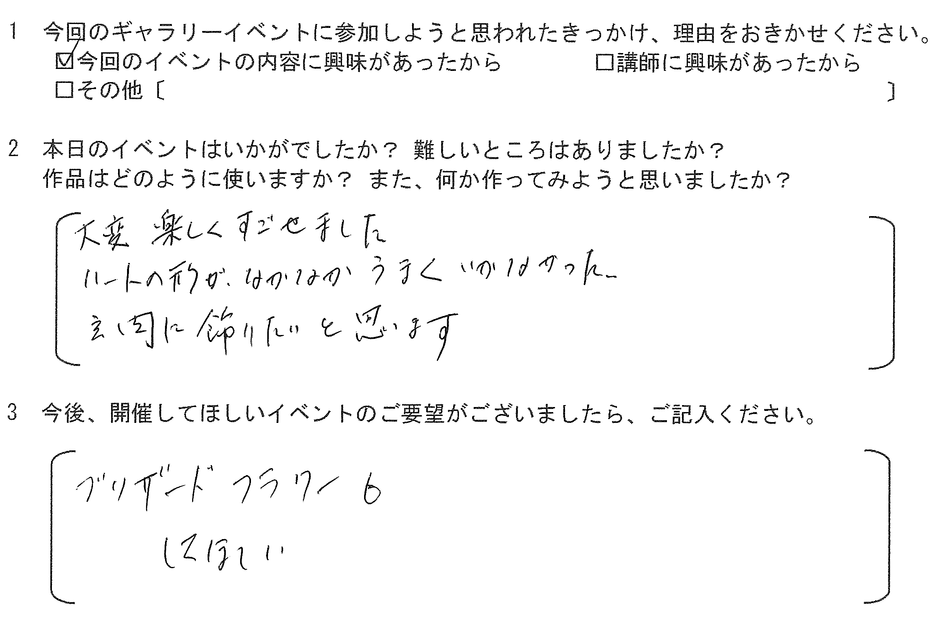 1 今回のギャラリーイベントに参加しようと思われたきっかけ、理由をおきかせください。
☑今回のイベントの内容に興味があったから □講師に興味があったから
□その他〔 〕
2 本日のイベントはいかがでしたか？ 難しいところはありましたか？
作品はどのように使いますか？ また、何か作ってみようと思いましたか？
大変 楽しくすごせました
ハートの形が、なかなか うまく いかなかった。
玄関に 飾りたい と 思います
3 今後、開催してほしいイベントのご要望がございましたら、ご記入ください。
ブリザードフラワーも
してほしい